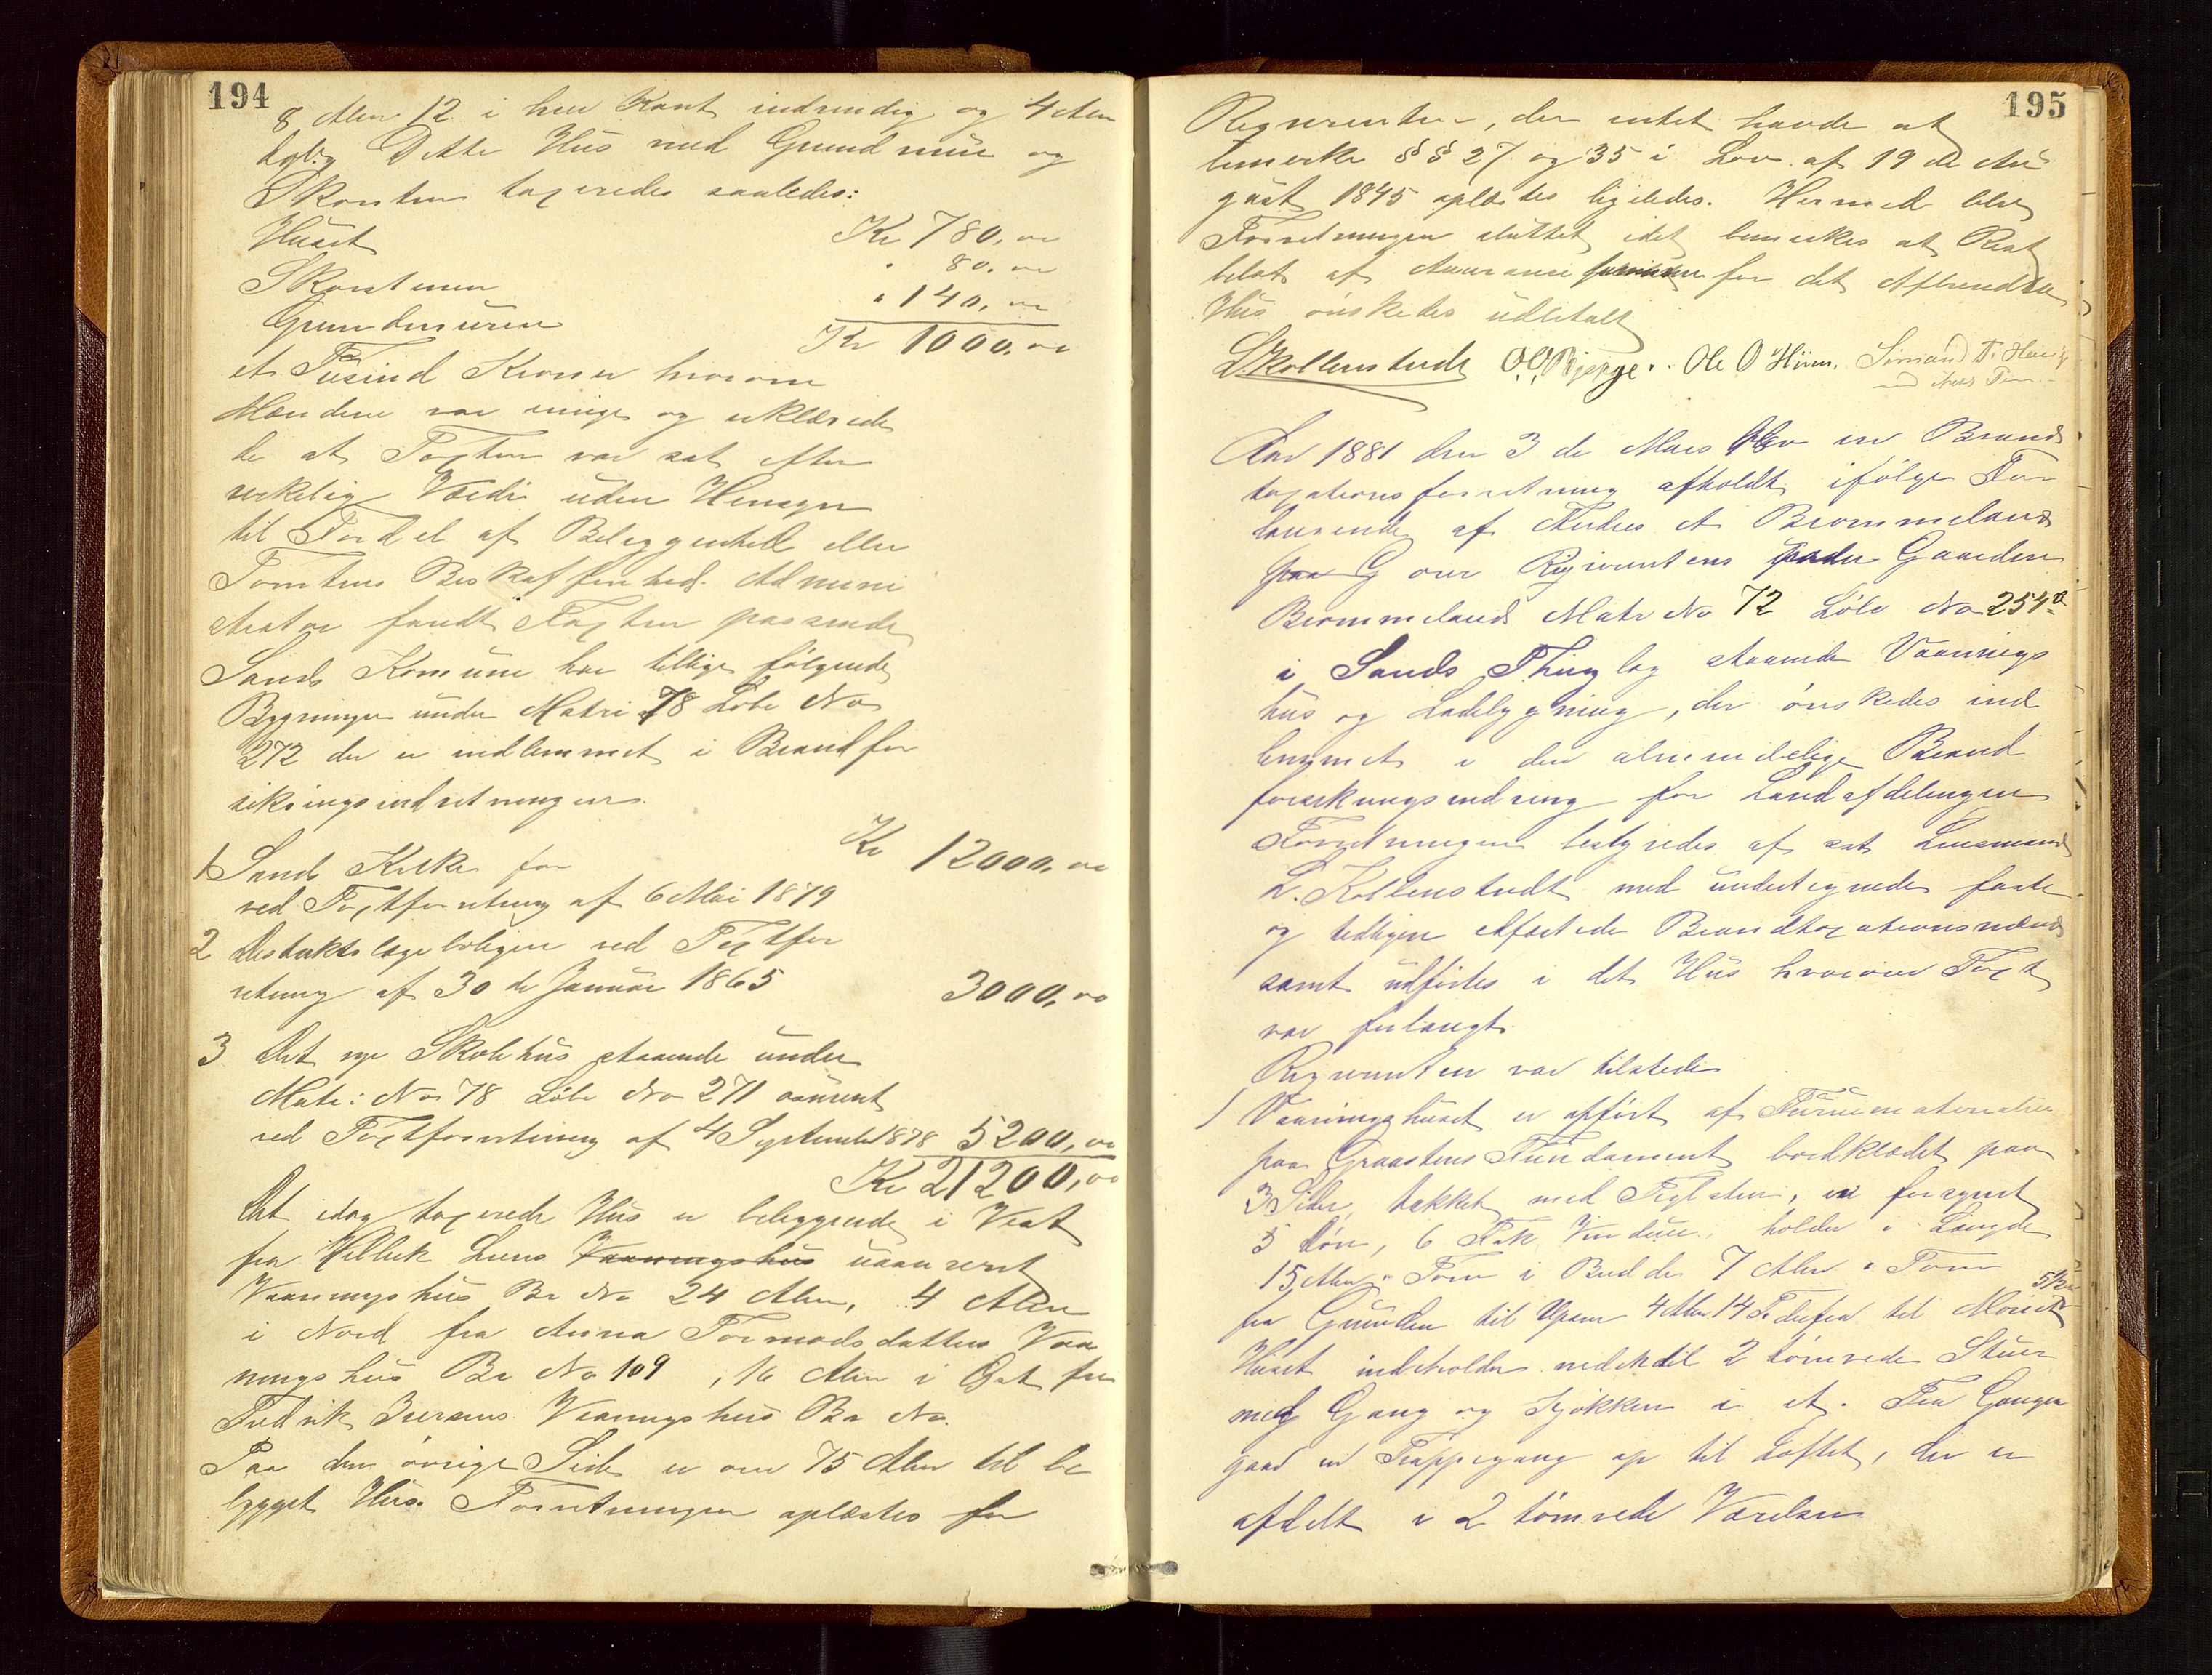 194
8 Alen 12 i hver Kant indvendig og 4 Alen
Dette Huus med Grundmuur og
Skorsten taxeredes saaledes:
Huset Kr 780,00
Skorstenen " 80,00
Grundmuren " 140,00
Kr 1000,00
et Tusind Kroner hvorom
Mændene var enige og erklærede
de at Taxten var sat efter
verkelig Værdi uden Hensyn
til Fordel af Beliggenhed eller
Tomtens Beskaffenhed. Admini
strator fandt Taxten passende
Sands Komune har tillige følgende
Bygninger under Matri 78 Løbe No
272 der er indlemmet i Brandfor
sikringsindretningen.
1 Sands Kirke for Kr 12000,00
ved Taxtforretning af 6 Mai 1879
2 Destriktslægeboligen ved Taxtfor
retning af 30 de Januar 1865 3000,00
3 Det nye Skolehus staaende under
Matr: No 78 Løbe No 271 asurert
ved Taxtforretning af 4 September 1878 5200,00
Kr 21200,00
Det idag taxerede Hus er beliggende i Vest
fra Liens Vaaningshus uasurert
Vaaningshus Br No 24 Alen, 4 Alen
i Nord fra Anna Tormodsdatters Vaa
ningshus Br No 109, 16 Alen i Øst fra
Fredrik Iversens Vaaningshus Br No.
Paa den øvrige Side er over 75 Alen til be
bygget Hus. Forretningen oplæstes for
195
Reqverenten, der intet havde at
bemerke §§ 27 og 35 i Lov af 19 de Au
gust 1845 oplæstes ligeledes. Hermed blev
Forretningen sluttet idet bemerkes at Rest
beløb af Assurance for det Afbrændte
Hus ønskedes udbetalt
L. Kollenstvedt O. O. Bjerge. Ole O Hiim.
Aar 1881 den 3 de Mars blev en Brand
taxationsforretning afholdt ifølge For
langende af Andres A Brommeland
paa G over Reqvirentens paa Gaarden
Brommeland Matr No 72 Løbe No 254a
i Sands Thinglag staaende Vaanings
hus og Ladebygning, der ønskedes ind
lemmet i den almindelige Brand
forsikringsindretning for Landafdelingen
Forretningen bestyredes af sat Lensmand
L. Kollenstvedt med undertegnede faste
og edeligen Brandtaxationsmænd
samt udførtes i det Hus hvorom Taxt
var forlangt.
Reqverenten var tilstede
1 Vaaningshuset er opført af Furuematerialier
paa Graastens Fundament bordklædet paa
3 Sider, tækket med Teglsten, er forsynet
5 Døre, 6 Fak Vinduer, holder i Længde
15 Alen " Tom i Bredde 7 Alen " Tom
fra Grunden til Opsen 4 Alen 14 T. derfra til Mønet
Huset indeholder nedentil 2 tømrede Stuer
med Gang og Kjøkken i et. Fra Gangen
gaar en Trappegang op til Loftet, der er
afdelt i 2 tømrede Værelser